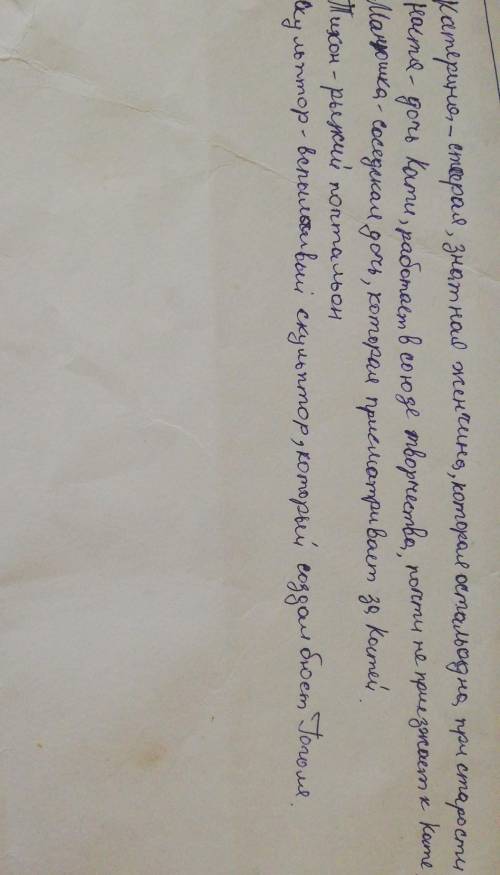 Катерина, - старая, знатная женсчина, которая осталась одна, при старости
Настя - дочь Кати, работает в союзе творчества, почти не приезжает к Кате
Манюшка - соседская дочь, которая присматривает за Катей.
Тихон - рыжий почтальон
Скульптор - вспыльчивый скульптор, который создал бюст Гоголя.